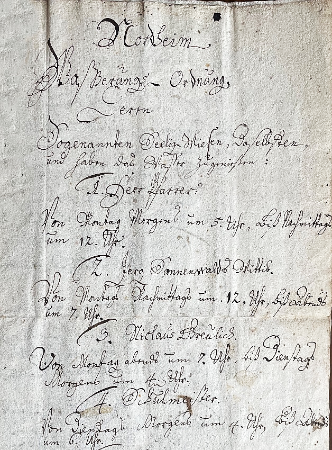 Norheim
Waßerungs-Ordnung,
Derer
Sogenannten Seelig Wiesen, Daselbsten,
und haben das Waßer zugenießen:
1. Herr Pfarrer.
Von Montag Morgens um 5. Uhr, biß Nachmittags
um 12. Uhr.
2. Sonnenwalds Wittib.
Von Montags Nachmittags um 12. Uhr, biß abends
um 7. Uhr.
3. Niclaus
Von Montag abends um 7. Uhr. biß Dienstag
Morgens um 4. Uhr.
4. Schulmeister.
Von Dienstags Morgens um 4. Uhr, biß abends
um 6. Uhr.